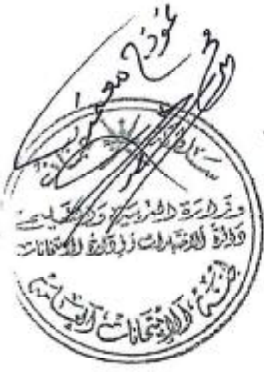 نموذج معتمد
سلطنة عمان
وزارة التربية والتعليم
دائرة الاختبارات وإدارة الامتحانات
الامتحانات العامة